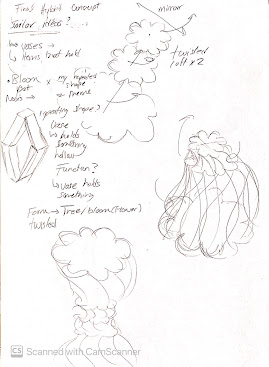 Final Hybrid Concept
Similar ideas? ...
mirror
↳ Vases →
↳ Items that hold
open
twisted
loft x2
• Bloom x my repeated
pot shape
repeating shape?
Vase
↳ holds
something
hollow
Function?
↳ Vase holds
something
Form → Tree/bloom (flower)
twisted
CS Scanned with CamScanner